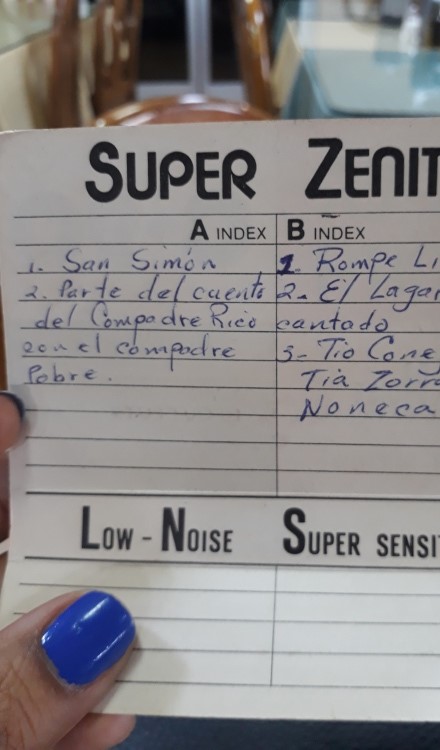 SUPER ZENIT
A INDEX
B INDEX
1. San Simón
2. Parte del cuento
del Compadre Rico
con el compadre
Pobre.
1. Rompe Li
2. El Lagar
cantado
3- Tio Cone
Tia Zorr
Noneca
LOW-NOISE
SUPER SENSI